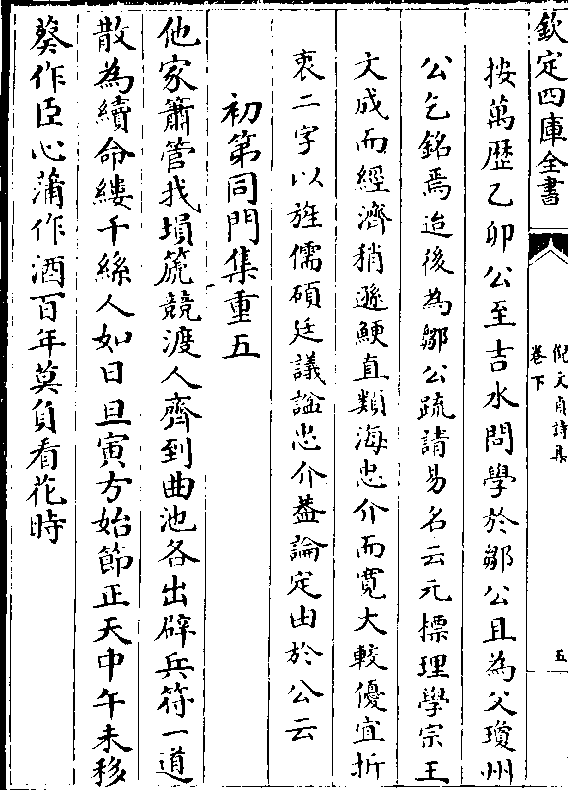 欽定四庫全書
倪文貞詩集
卷下
五
按萬歴乙卯公至吉水問學於鄒公且為父瓊州
公乞銘焉迨後為鄒公疏請易名云元標理學宗王
文成而經濟稍遜鯁直類海忠介而寛大較優宜折
衷二字以旌儒碩廷議諡忠介葢論定由於公云
初第同門集重五
他家簫管我塤箎競渡人齊到曲池各出辟兵符一道
散為續命縷千絲人如日旦寅方始節正天中午未移
葵作臣心蒲作酒百年莫負看花時